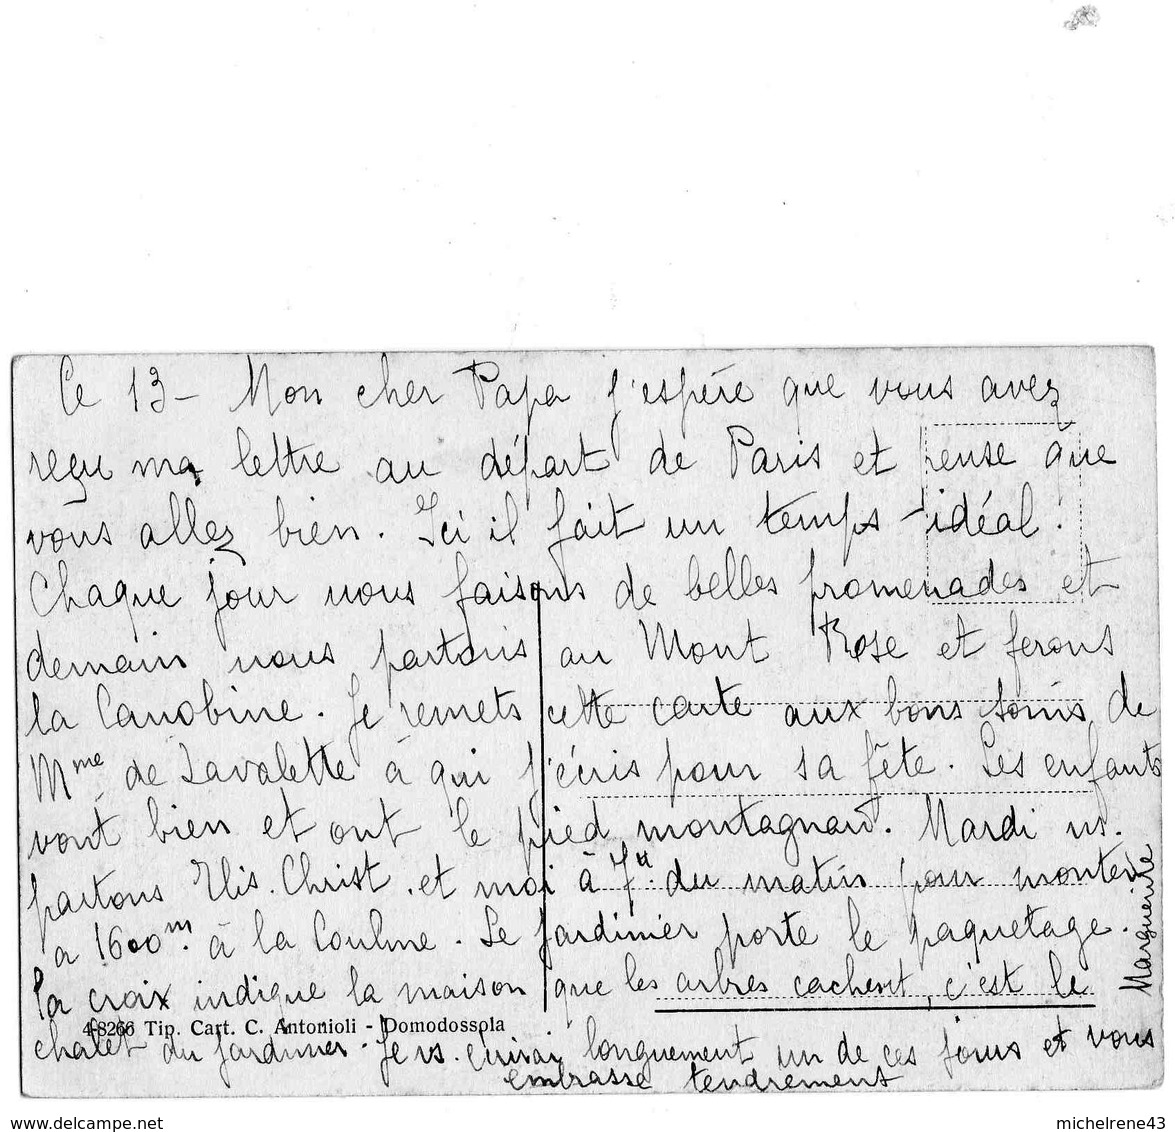 Ce 13 - Mon cher Papa j'espère que vous avez
reçu ma lettre au départ de Paris et pense que
vous allez bien. Ici il fait un temps idéal !
Chaque jour nous faisons de belles promenades et
demain nous partons au Mont Rose et ferons
la Canobine. Je remets cette carte aux bons soins de
Mme de Lavalette à qui j'écris pour sa fête. Les enfants
vont bien et ont le pied montagnard. Mardi ns.
partons Elis. Christ. et moi à 7H. du matin pour monter
a 1600m. à la Coulme. Le jardinier porte le paquetage.
La croix indique la maison que les arbres cachent, c'est le
4-8266 Tip. Cart. C. Antonioli - Domodossola
chalet du jardinier. Je vs. écrirai longuement un de ces jours et vous
embrasse tendrement
Marguerite
www.delcampe.net
michelrene43